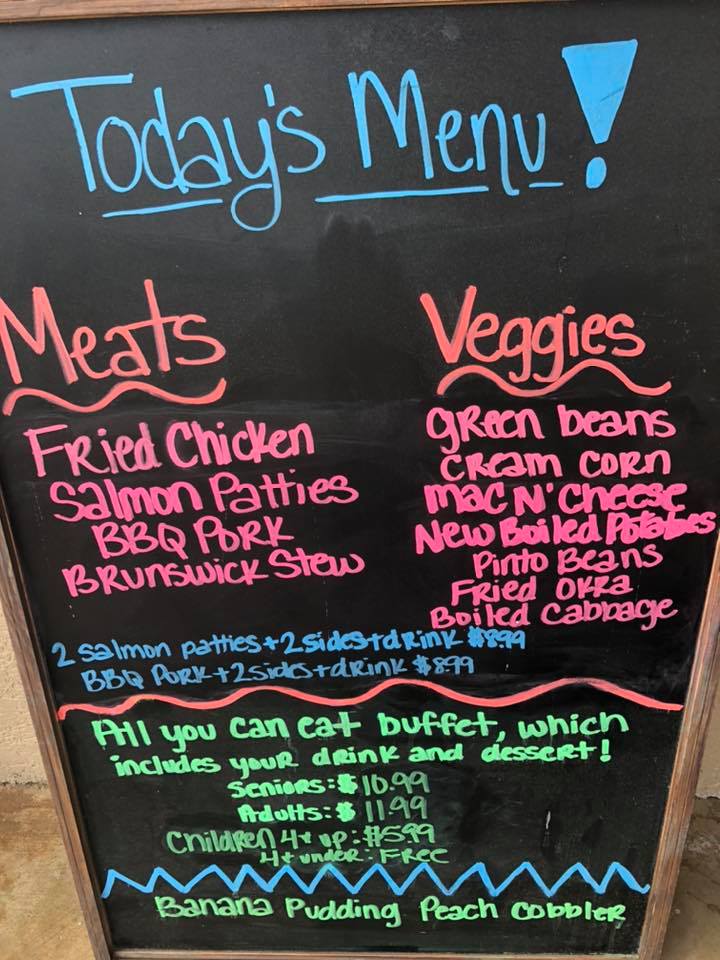 Today's Menu!
Meats
Fried Chicken
Salmon Patties
BBQ Pork
Brunswick Stew
Veggies
green beans
cream corn
mac n' cheese
New Boiled Potatoes
Pinto Beans
Fried Okra
Boiled Cabbage
2 salmon patties + 2 sides + drink $8.99
BBQ Pork + 2 sides + drink $8.99
All you can eat buffet, which
includes your drink and dessert!
Seniors: $10.99
Adults: $11.99
Children 4+ up: $5.99
4+ under: Free
Banana Pudding Peach Cobbler